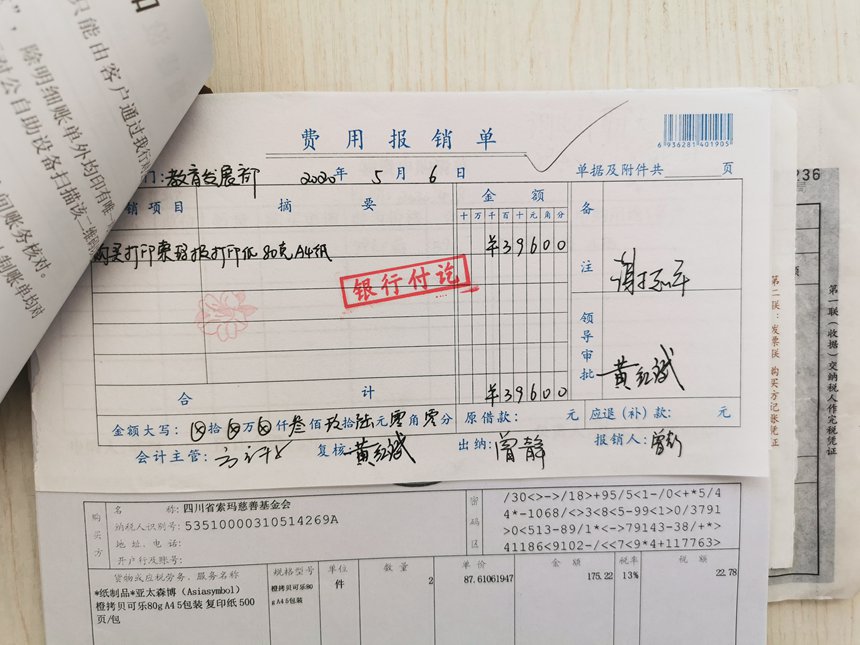 只能由客户通过我行对
”，除明细账单外均印有唯一
对公自助设备扫描该二维码
间账务核对。
制账单均对
费用报销单
6 936281 401905
门：教育发展部 2020年 5月 6日 单据及附件共 页
销项目 摘要 金额 备注
十万千百十元角分
购买打印索玛报打印纸 80克A4纸 ¥39600
银行付讫
领导审批 黄红斌
合计 ¥39600
金额大写：⊗拾⊗万⊗仟叁佰玖拾陆元零角零分 原借款： 元 应退（补）款： 元
会计主管： 复核：黄红斌 出纳：曾静 报销人：曾彪
236
第二联：发票联 购买方记账凭证
第一联（收据）交纳税人作完税凭证
购买方
名称：四川省索玛慈善基金会
纳税人识别号：53510000310514269A
地址、电话：
开户行及账号：
密码区
/30<>->/18>+95/5<1-/0<+*5/4
4*-1068/<>3<8<5-99<1>0/3791
>0<513-89/1*<->79143-38/+*>
41186<9102-/<<7<9*4+117763>
货物或应税劳务、服务名称 规格型号 单位 数量 单价 金额 税率 税额
*纸制品*亚太森博（Asiasymbol） 橙拷贝可乐80 件 2 87.61061947 175.22 13% 22.78
橙拷贝可乐80g A4 5包装 复印纸 500 gA4 5包装
页/包